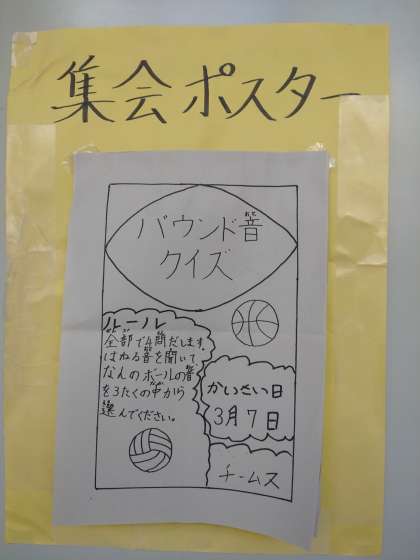 集会ポスター
バウンド音
クイズ
ルール
全部で4問だします。
はねる音を聞いて
なんのボールの音
を3たくの中から
選んでください。
かいさい日
3月7日
チームス